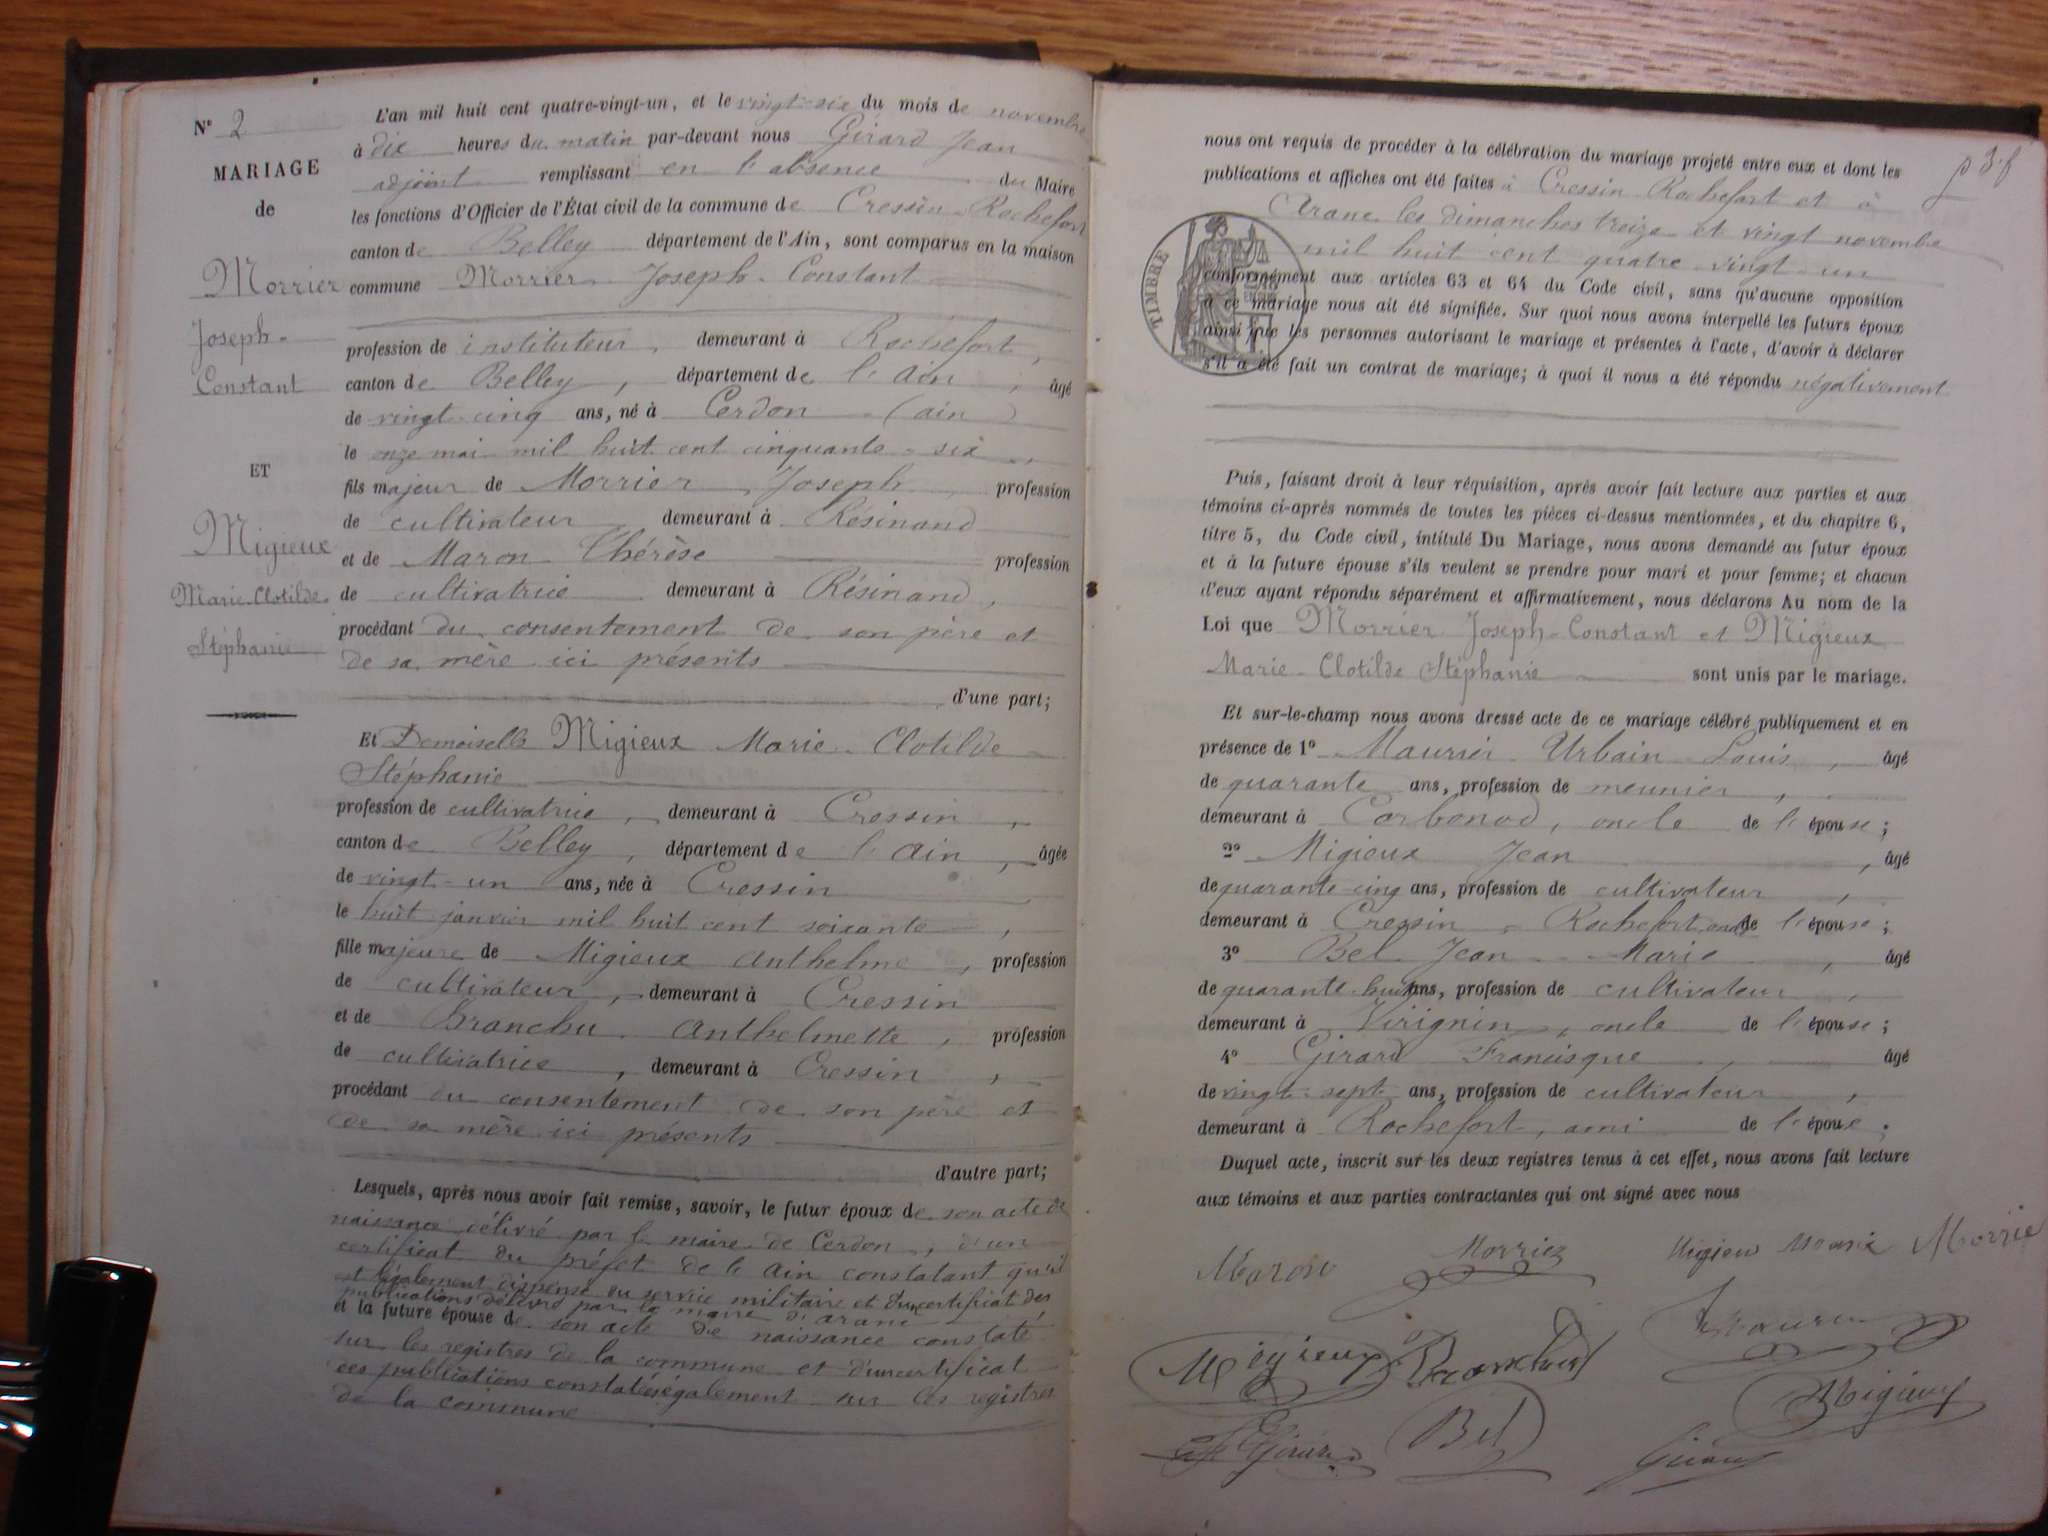 Nº 2
MARIAGE
de
Morrier
Joseph-
Constant
ET
Migieux
Marie-Clotilde-
Stéphanie
L'an mil huit cent quatre-vingt-un, et le vingt-six du mois de novembre
à dix heures du matin par-devant nous Girard Jean
adjoint remplissant en l'absence du Maire
les fonctions d'Officier de l'État civil de la commune de Cressin-Rochefort
canton de Belley département de l'Ain, sont comparus en la maison
commune Morrier Joseph-Constant
profession de instituteur, demeurant à Rochefort,
canton de Belley, département de l'Ain, âgé
de vingt-cinq ans, né à Cerdon (ain)
le onze mai mil huit cent cinquante-six,
fils majeur de Morrier, Joseph, profession
de cultivateur demeurant à Résinand
et de Maron Thérèse profession
de cultivatrice demeurant à Résinand,
procédant du consentement de son père et
de sa mère ici présents
d'une part;
Et Demoiselle Migieux Marie-Clotilde
Stéphanie
profession de cultivatrice, demeurant à Cressin,
canton de Belley, département de l'Ain, âgée
de vingt-un ans, née à Cressin
le huit janvier mil huit cent soixante,
fille majeure de Migieux Anthelme, profession
de cultivateur, demeurant à Cressin
et de Branchu Anthelmette, profession
de cultivatrice, demeurant à Cressin,
procédant du consentement de son père et
de sa mère ici présents
d'autre part;
Lesquels, après nous avoir fait remise, savoir, le futur époux de son acte de
naissance délivré par le maire de Cerdon, d'un
certificat du préfet de l'Ain constatant qu'il
est légalement dispensé du service militaire et d'un certificat des
publications délivré par le maire d'arane
et la future épouse de son acte de naissance constaté
sur les registres de la commune et d'un certificat
des publications constatées également sur les registres
de la commune
p 3 f
nous ont requis de procéder à la célébration du mariage projeté entre eux et dont les
publications et affiches ont été faites à Cressin Rochefort et à
Arane les dimanches treize et vingt novembre
mil huit cent quatre-vingt-un
TIMBRE
conformément aux articles 63 et 64 du Code civil, sans qu'aucune opposition
à ce mariage nous ait été signifiée. Sur quoi nous avons interpellé les futurs époux
ainsi que les personnes autorisant le mariage et présentes à l'acte, d'avoir à déclarer
s'il a été fait un contrat de mariage; à quoi il nous a été répondu négativement
Puis, faisant droit à leur réquisition, après avoir fait lecture aux parties et aux
témoins ci-après nommés de toutes les pièces ci-dessus mentionnées, et du chapitre 6,
titre 5, du Code civil, intitulé Du Mariage, nous avons demandé au futur époux
et à la future épouse s'ils veulent se prendre pour mari et pour femme; et chacun
d'eux ayant répondu séparément et affirmativement, nous déclarons Au nom de la
Loi que Morrier Joseph-Constant et Migieux
Marie-Clotilde Stéphanie sont unis par le mariage.
Et sur-le-champ nous avons dressé acte de ce mariage célébré publiquement et en
présence de 1º Maurier Urbain Louis, âgé
de quarante ans, profession de meunier,
demeurant à Corbonod, oncle de l'épouse;
2º Migieux Jean, âgé
de quarante-cinq ans, profession de cultivateur,
demeurant à Cressin-Rochefort, oncle de l'épouse;
3º Bel Jean-Marie, âgé
de quarante-huit ans, profession de cultivateur,
demeurant à Virignin, oncle de l'épouse;
4º Girard Francisque, âgé
de vingt-sept ans, profession de cultivateur,
demeurant à Rochefort, ami de l'époux.
Duquel acte, inscrit sur les deux registres tenus à cet effet, nous avons fait lecture
aux témoins et aux parties contractantes qui ont signé avec nous
Maron Morriez Migieux Morrie
Migieux Branchu
Girard Bel Migieux
Girard